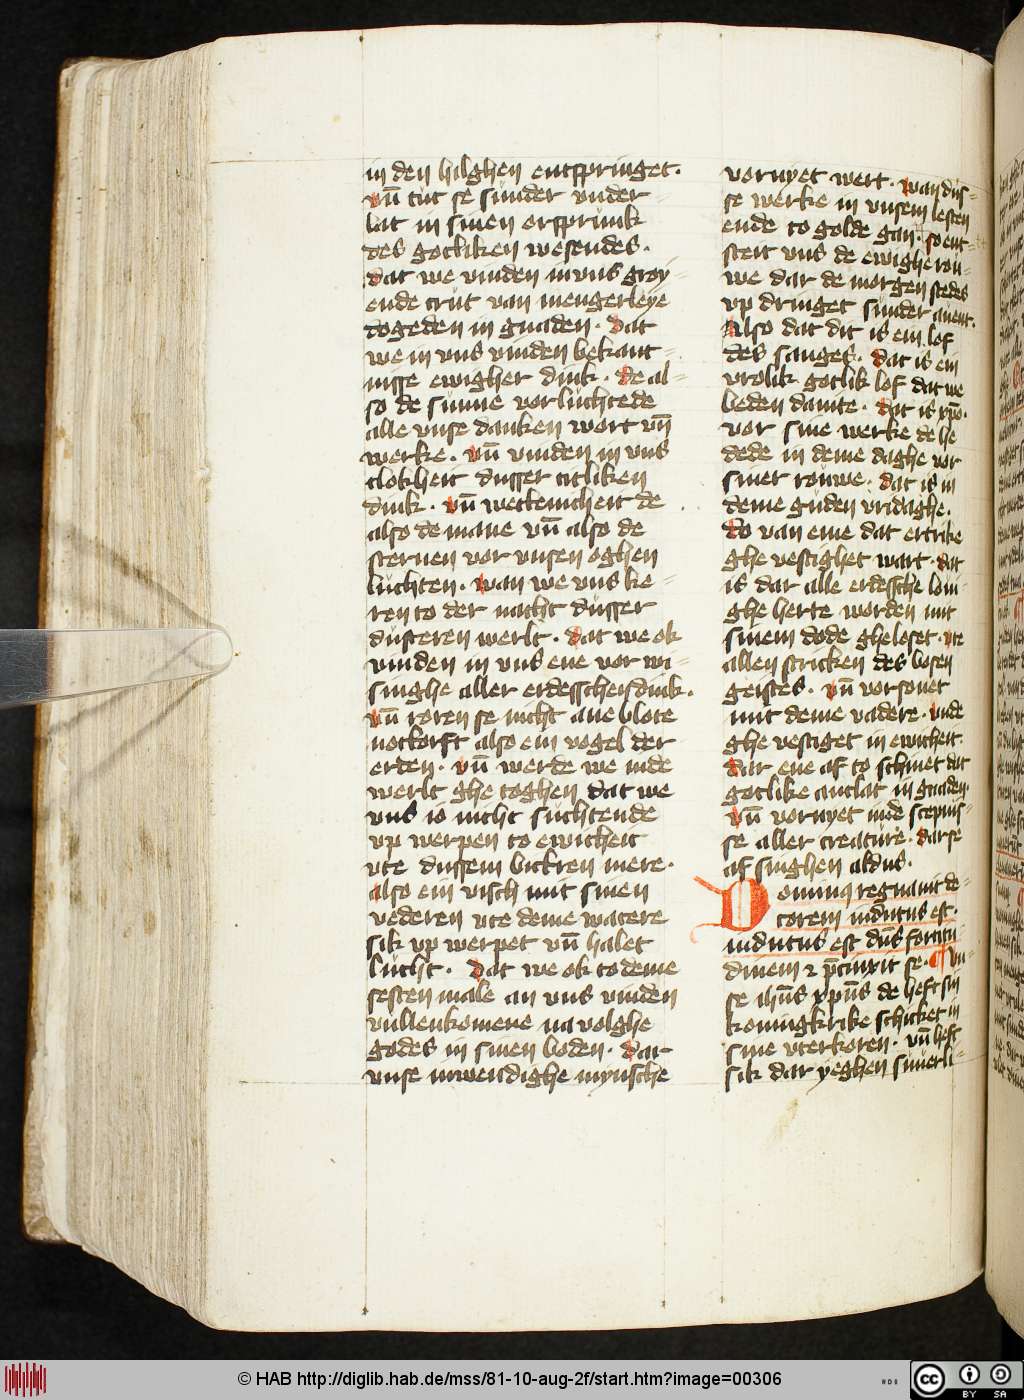 in den hilghen entspringet.
vn̄ tut se sunder vnder
lat in sinen orsprunk
des gotliken wesendes.
dat we vinden in vns groy-
ende crut van mengerleye
dogeden in gnaden. dat
we in vns vinden bekant-
nisse ewigher dink. de al-
so de sunne vorluchtede
alle vnse danken wort vn̄
werke. vn̄ vinden in vns
clokheit dusser titliken
dink. vn̄ wetteincheit de
also de mane vn̄ also de
sternen vor vnsen oghen
luchten. wan we vns ke-
ren to der nacht dusser
dusteren werlt. dat we ok
vinden in vns ene vor wi-
singhe aller erdesschersdink.
vn̄ roren se nicht ane blote
notdorft also ein vogel der
erden. vn̄ werde we inde
werlt ghe toghen dat we
vns io nicht suchtende
vp werpen to ewicheit
vte dussem bickren mere.
also ein visch mit sinen
vederen vte deme watere
sik vp werpet vn̄ halet
lucht. dat we ok to deme
sesten male an vns vinden
vullenkomene na volghe
godes in sinen boden. dat
vnse inwendighe mynsche
vornyet wert. wan dus-
se werke in vnsem lesten
ende to golde gan. so ent-
steit vns de ewighe rou-
we dar de morgen stedes
vp dringet sunder auent.
Also dat dit is ein lof
des sanges. dat is ein
vrolik gotlik lof dat we
beden damite. dat is xp̄o.
vor sine werke de he
dede in deme daghe vor
siner rouwe. dat is in
deme guden vridaghe.
do van eme dat ertrike
ghe vestighet wart. dat
is dar alle erdessche lom-
ghe herte worden mit
sinem dode gheloset. vte
allen stricken des bosen
geistes. vn̄ vorsonet
mit deme vadere. vnde
ghe vestiget in ewicheit.
dar ene af to schinet dat
gotlike antlat in gnaden.
vn̄ vornyet inde scepnis-
se aller creature. dar se
af singhen aldus.
Dominus regnauit de-
corem indutus est.
indutus est dn̄s fortitu
dinem ⁊ p̄cinxit se. ¶ Vn-
se ihūs xp̄us de heft sin
koningkrike schicket in
sine vterkoren. vn̄ heft
sik dar yeghen suuerli-
© HAB http://diglib.hab.de/mss/81-10-aug-2f/start.htm?image=00306
HAB
cc BY SA